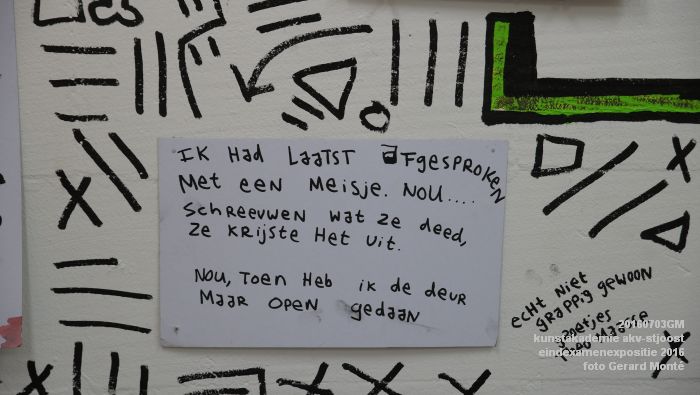 es
IK Had LaatST aFgesproken
Met een Meisje. Nou....
SchReeuwen wat ze deed,
Ze KRijste Het uit.
Nou, Toen Heb ik de deur
Maar open gedaan
echt niet
grappig gewoon
20160703GM
kunstakademie akv-stjoost
eindexamenexpositie 2016
foto Gerard Monté